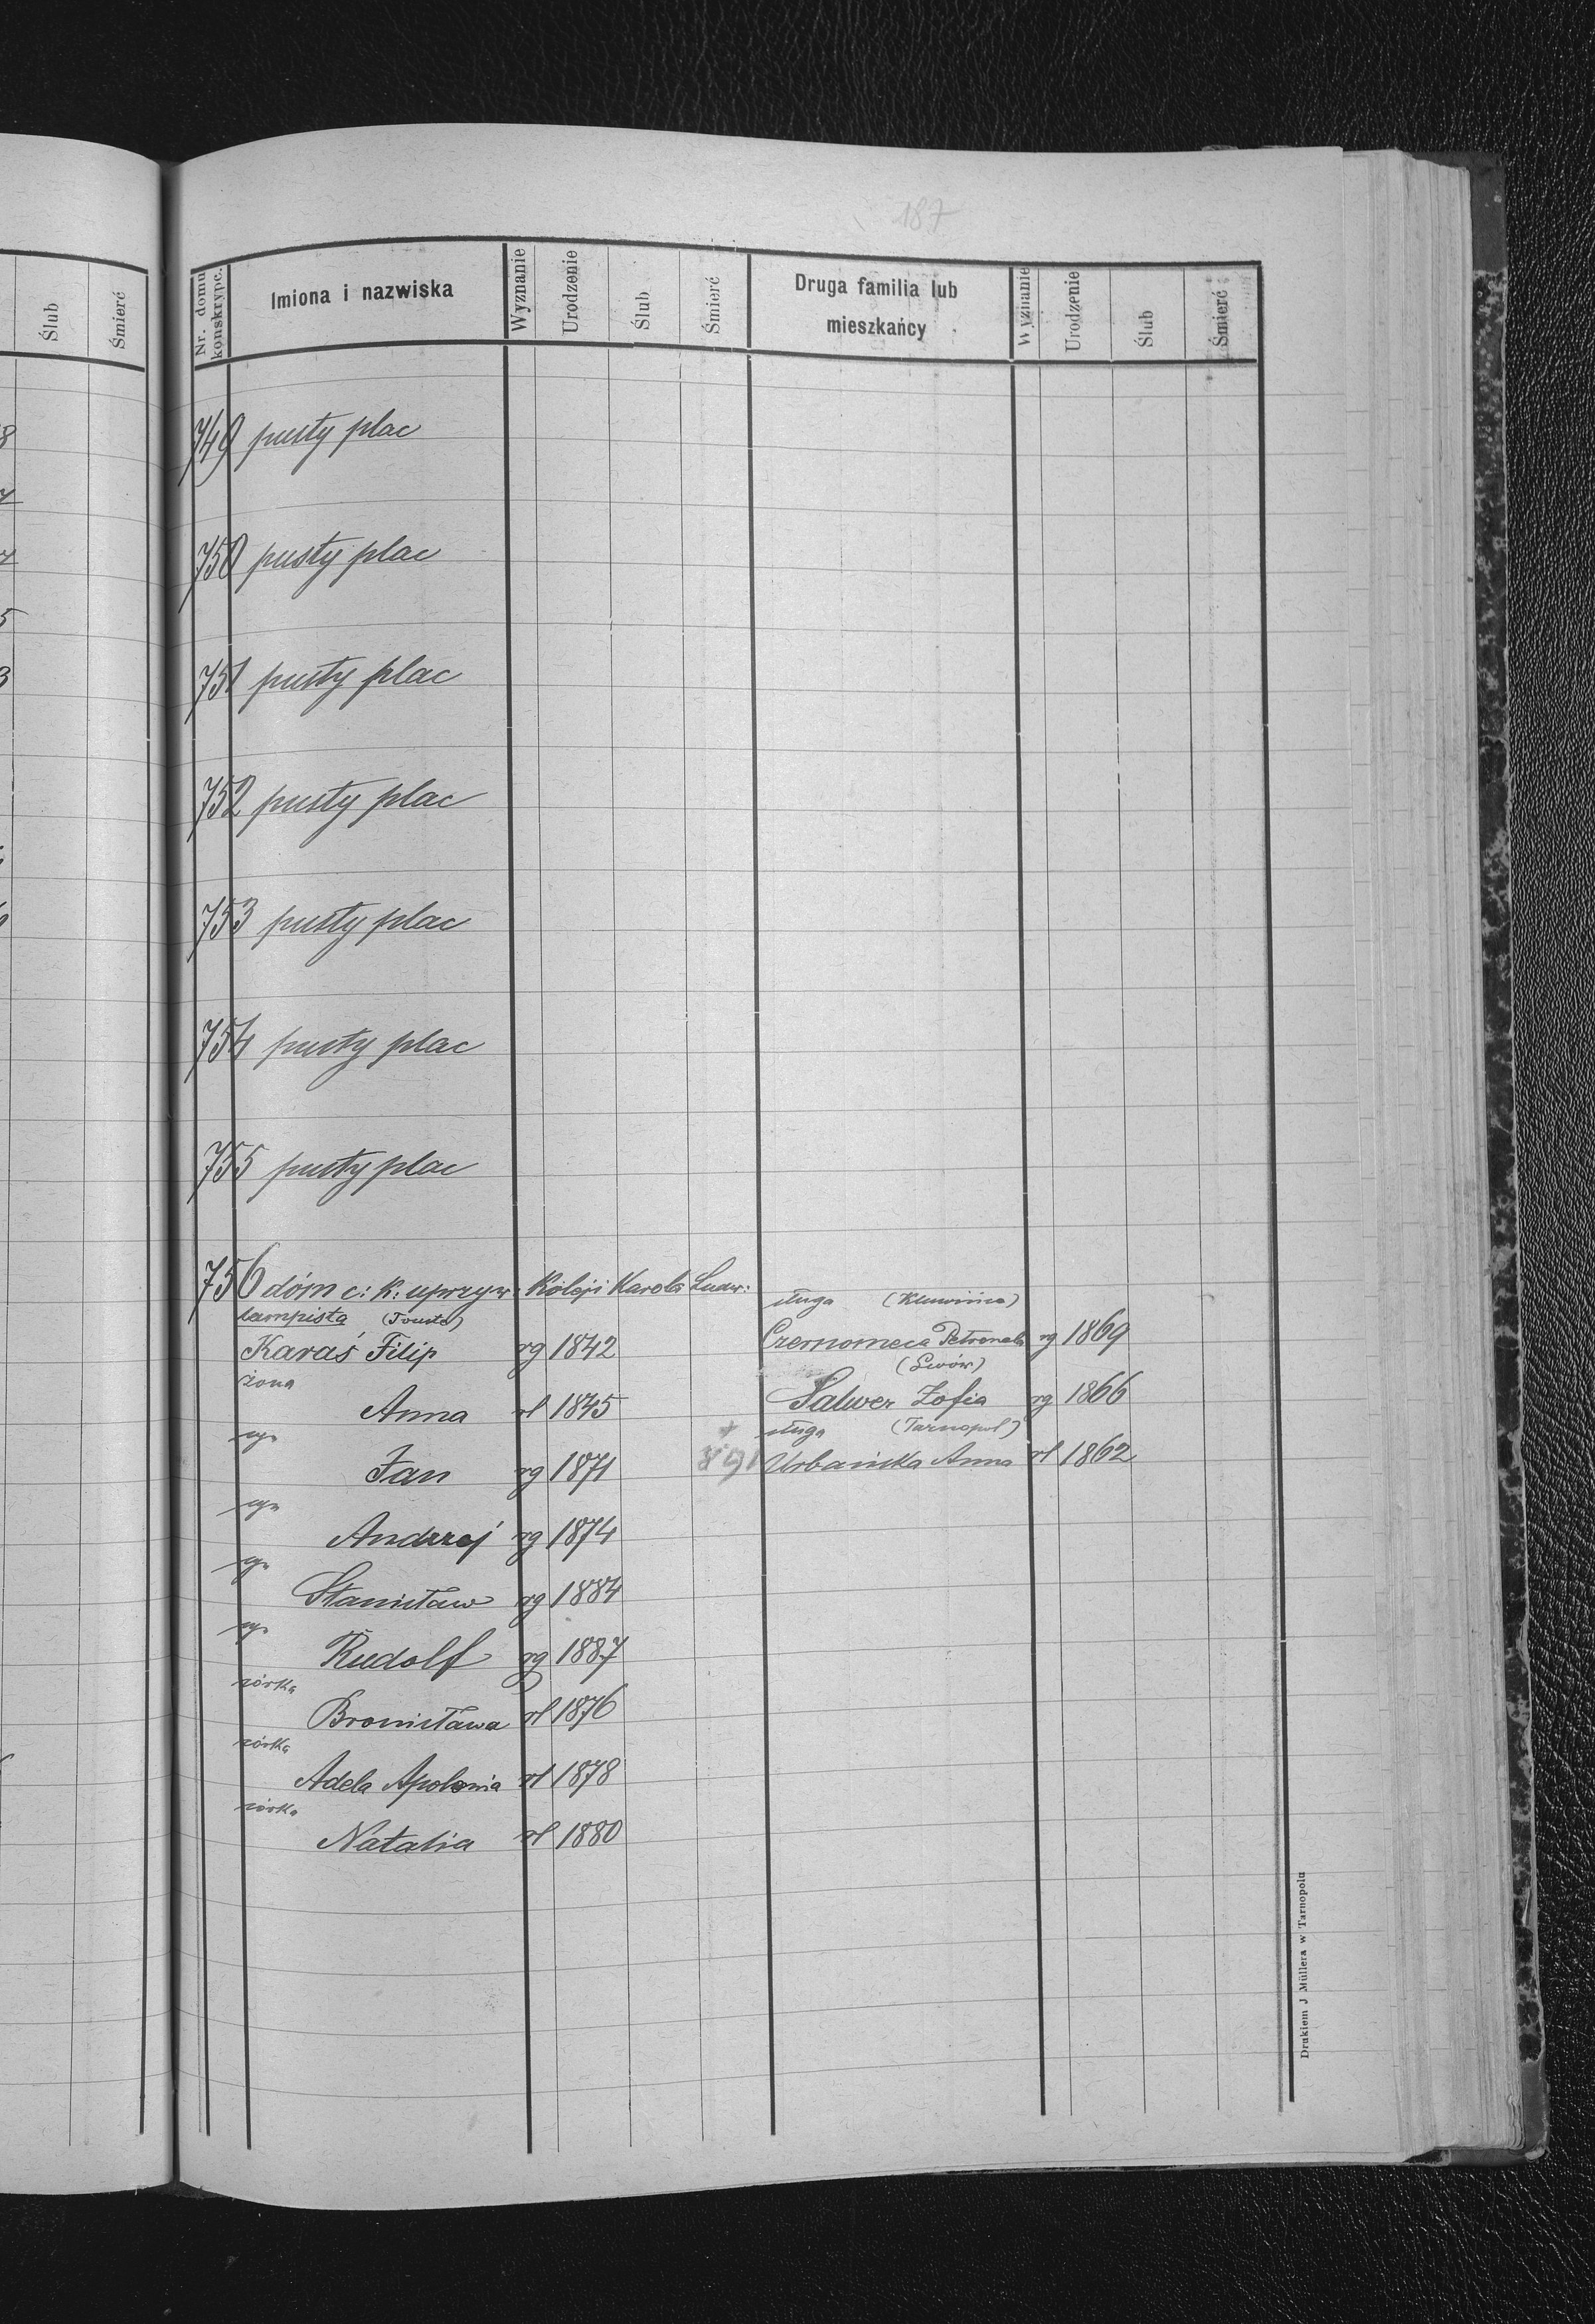 187
Ślub
Śmierć
Nr. domu konskrypc.
Imiona i nazwiska
Wyznanie
Urodzenie
Ślub
Śmierć
Druga familia lub
mieszkańcy
Wyznanie
Urodzenie
Ślub
Śmierć
749 pusty plac
750 pusty plac
751 pusty plac
752 pusty plac
753 pusty plac
754 pusty plac
755 pusty plac
756 dóm c: k: uprzyw: Koleji Karola Ludw:
lampista (Touste)
Karaś Filip rg 1842
żona
Anna rl 1845
syn
Jan rg 1871
syn
Andrzej rg 1874
syn
Stanisław rg 1884
syn
Rudolf rg 1887
córka
Bronisława rl 1876
córka
Adela Apolonia rl 1878
córka
Natalia rl 1880
sługa
Petronela rg 1869
(Lwów)
Salwer Zofia rg 1866
sługa (Tarnopol)
+ 891 Urbańska Anna rl 1862
Drukiem J Müllera w Tarnopolu